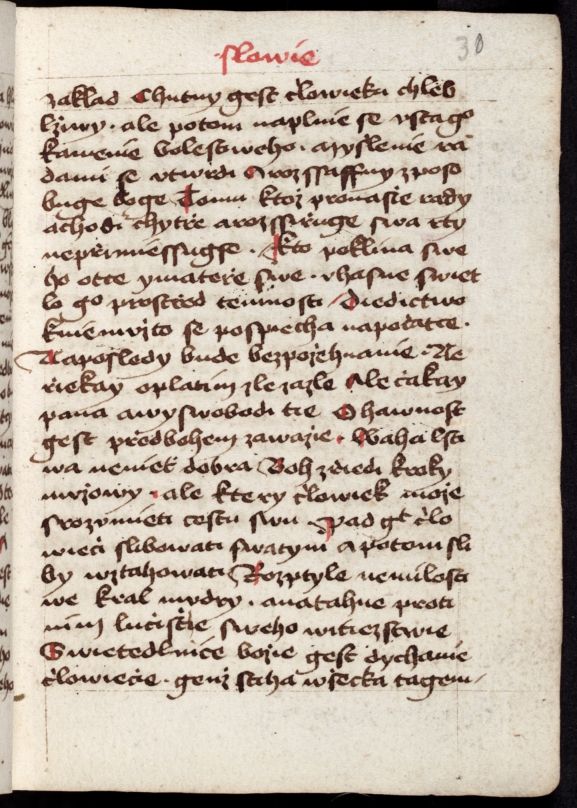 ·słowie
30
zaklad Chutny gest člowieku chleb
lžiwy · ale potom naplnie se vsta g°
kamenie bolestweho · Myšlenie ra
dami se vtwrdi A rozssaffny zposo
buge boge Tomu ktož pronasie rady
a chodi chytře a rozssiřuge swa rty
nepřimiessugse · Kto poklina swe
ho otce y mateře swe · vhasne swiet
lo g° prostřed temnosti Diedictwo
k niemužto se pospiecha na počatce ·
Naposledy bude bez požehnanie · Ne
řiekay oplatim zle za zle Ale čakay
pana a wyswobodi tie Ohawnost
gest před bohem zawažie · Waha lsti
wa nenie dobra Boh zřiedi kroky
mužowy · ale ktery člowiek može
srozumieti cestu swu · Pad gt čło
wieči slibowati swatym A potom sli
by wztahowati Rozptyle nemilosti
we kral mudry · a natahne proti
nim lučistie sweho witiezstwie
Swietedlnice božie gest dychanie
člowiečie · genž stiha wšecka tagem-